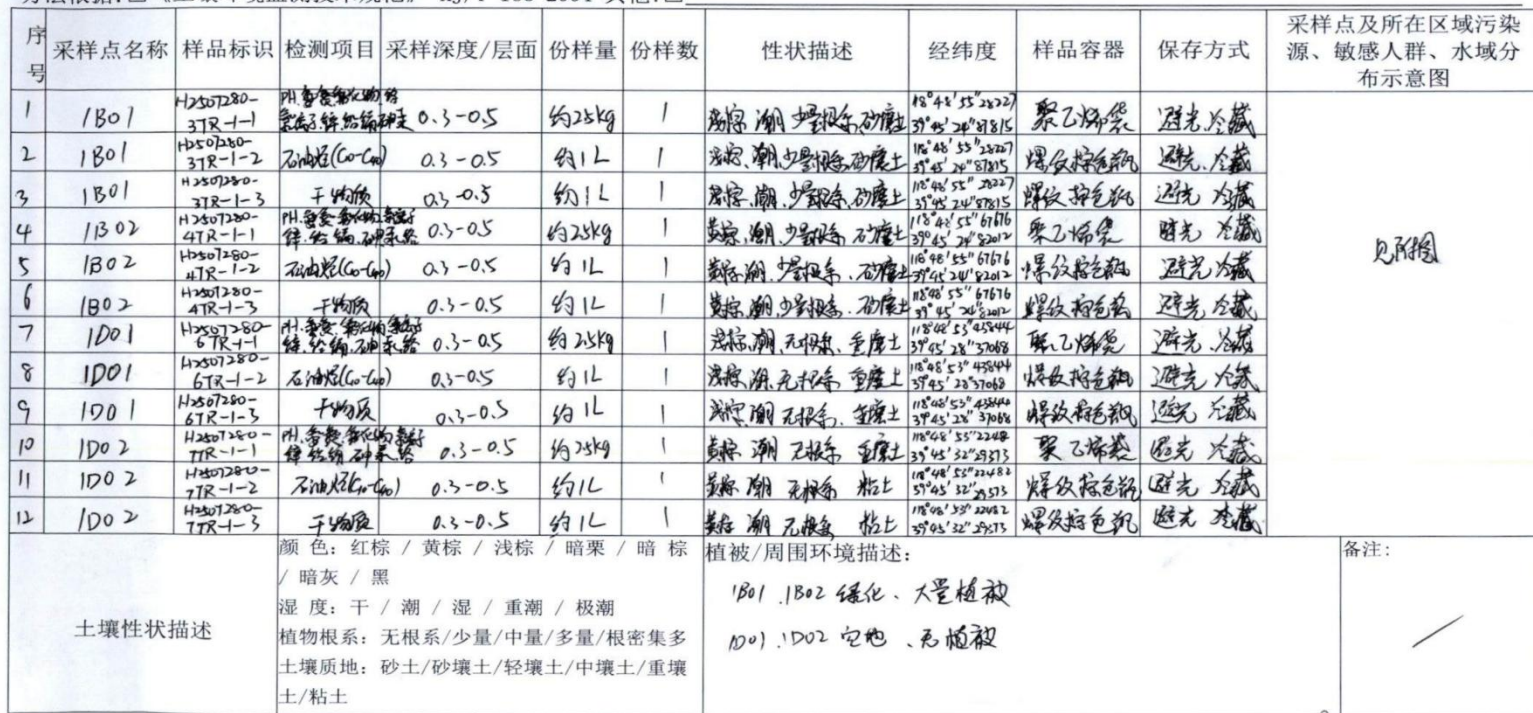 序号 采样点名称 样品标识 检测项目 采样深度/层面 份样量 份样数 性状描述 经纬度 样品容器 保存方式 采样点及所在区域污染源、敏感人群、水域分布示意图
1 1B01 H2507280-3TR-1-1 0.3-0.5 约2.5kg 1 浅棕 潮 少量根系 砂壤土 118°48′55″28227 39°45′24″87815 聚乙烯袋 避光 冷藏
2 1B01 H2507280-3TR-1-2 石油烃(C10-C40) 0.3-0.5 约1L 1 浅棕 潮 少量根系 砂壤土 118°48′55″28227 39°45′24″87815 螺纹棕色瓶 避光 冷藏
3 1B01 H2507280-3TR-1-3 干物质 0.3-0.5 约1L 1 浅棕 潮 少量根系 砂壤土 118°48′55″28227 39°45′24″87815 螺纹棕色瓶 避光 冷藏
4 1B02 H2507280-4TR-1-1 0.3-0.5 约2.5kg 1 黄棕 潮 少量根系 砂壤土 118°48′55″67676 39°45′24″82012 聚乙烯袋 避光 冷藏
5 1B02 H2507280-4TR-1-2 石油烃(C10-C40) 0.3-0.5 约1L 1 黄棕 潮 少量根系 砂壤土 118°48′55″67676 39°45′24″82012 螺纹棕色瓶 避光 冷藏
6 1B02 H2507280-4TR-1-3 干物质 0.3-0.5 约1L 1 黄棕 潮 少量根系 砂壤土 118°48′55″67676 39°45′24″82012 螺纹棕色瓶 避光 冷藏
见附图
7 1D01 H2507280-6TR-1-1 0.3-0.5 约2.5kg 1 浅棕 潮 无根系 重壤土 118°48′53″43844 39°45′28″37068 聚乙烯袋 避光 冷藏
8 1D01 H2507280-6TR-1-2 石油烃(C10-C40) 0.3-0.5 约1L 1 浅棕 潮 无根系 重壤土 118°48′53″43844 39°45′28″37068 螺纹棕色瓶 避光 冷藏
9 1D01 H2507280-6TR-1-3 干物质 0.3-0.5 约1L 1 浅棕 潮 无根系 重壤土 118°48′53″43844 39°45′28″37068 螺纹棕色瓶 避光 冷藏
10 1D02 H2507280-7TR-1-1 0.3-0.5 约2.5kg 1 黄棕 潮 无根系 重壤土 39°45′32″29573 聚乙烯袋 避光 冷藏
11 1D02 H2507280-7TR-1-2 石油烃(C10-C40) 0.3-0.5 约1L 1 黄棕 潮 无根系 粘土 118°48′53″22482 39°45′32″29573 螺纹棕色瓶 避光 冷藏
12 1D02 H2507280-7TR-1-3 干物质 0.3-0.5 约1L 1 黄棕 潮 无根系 粘土 118°48′53″22482 39°45′32″29573 螺纹棕色瓶 避光 冷藏
土壤性状描述
颜 色: 红棕 / 黄棕 / 浅棕 / 暗栗 / 暗 棕
/ 暗灰 / 黑
湿 度: 干 / 潮 / 湿 / 重潮 / 极潮
植物根系: 无根系/少量/中量/多量/根密集多
土壤质地: 砂土/砂壤土/轻壤土/中壤土/重壤
土/粘土
植被/周围环境描述:
1B01.1B02 绿化、大量植被
1D01.1D02 空地、无植被
备注:
/